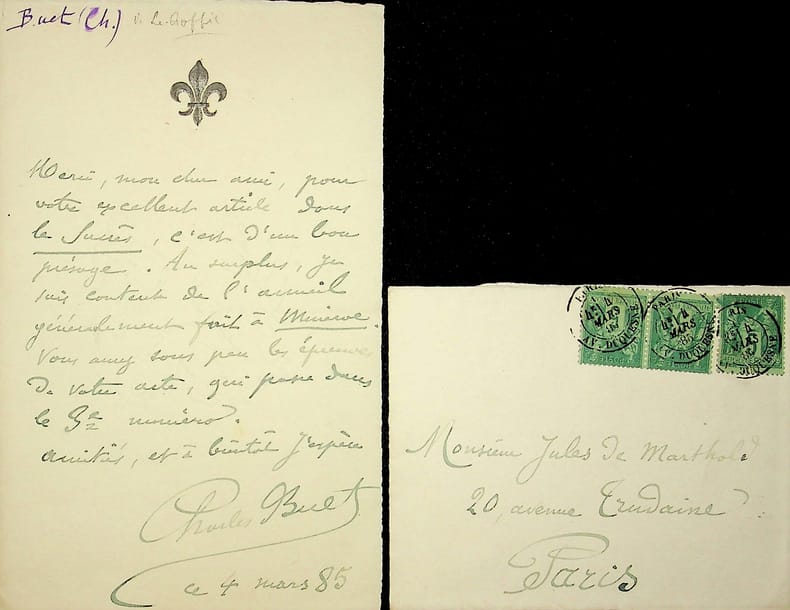 Buet (Ch.)
Merci, mon cher ami, pour
votre excellent article dans
le Succès, c'est d'un bon
présage. Au surplus, je
suis content de l'accueil
généralement fait à Minerve.
Vous aurez sous peu les épreuves
de votre acte, qui passe dans
le 3e numéro.
amitiés, et à bientôt j'espère
Charles Buet
ce 4 mars 85
PARIS
MARS
85
AV. DUQUESNE
PARIS
MARS
85
AV. DUQUESNE
MARS
DUQUESNE
Monsieur Jules de Marthold.
20, avenue Trudaine
Paris